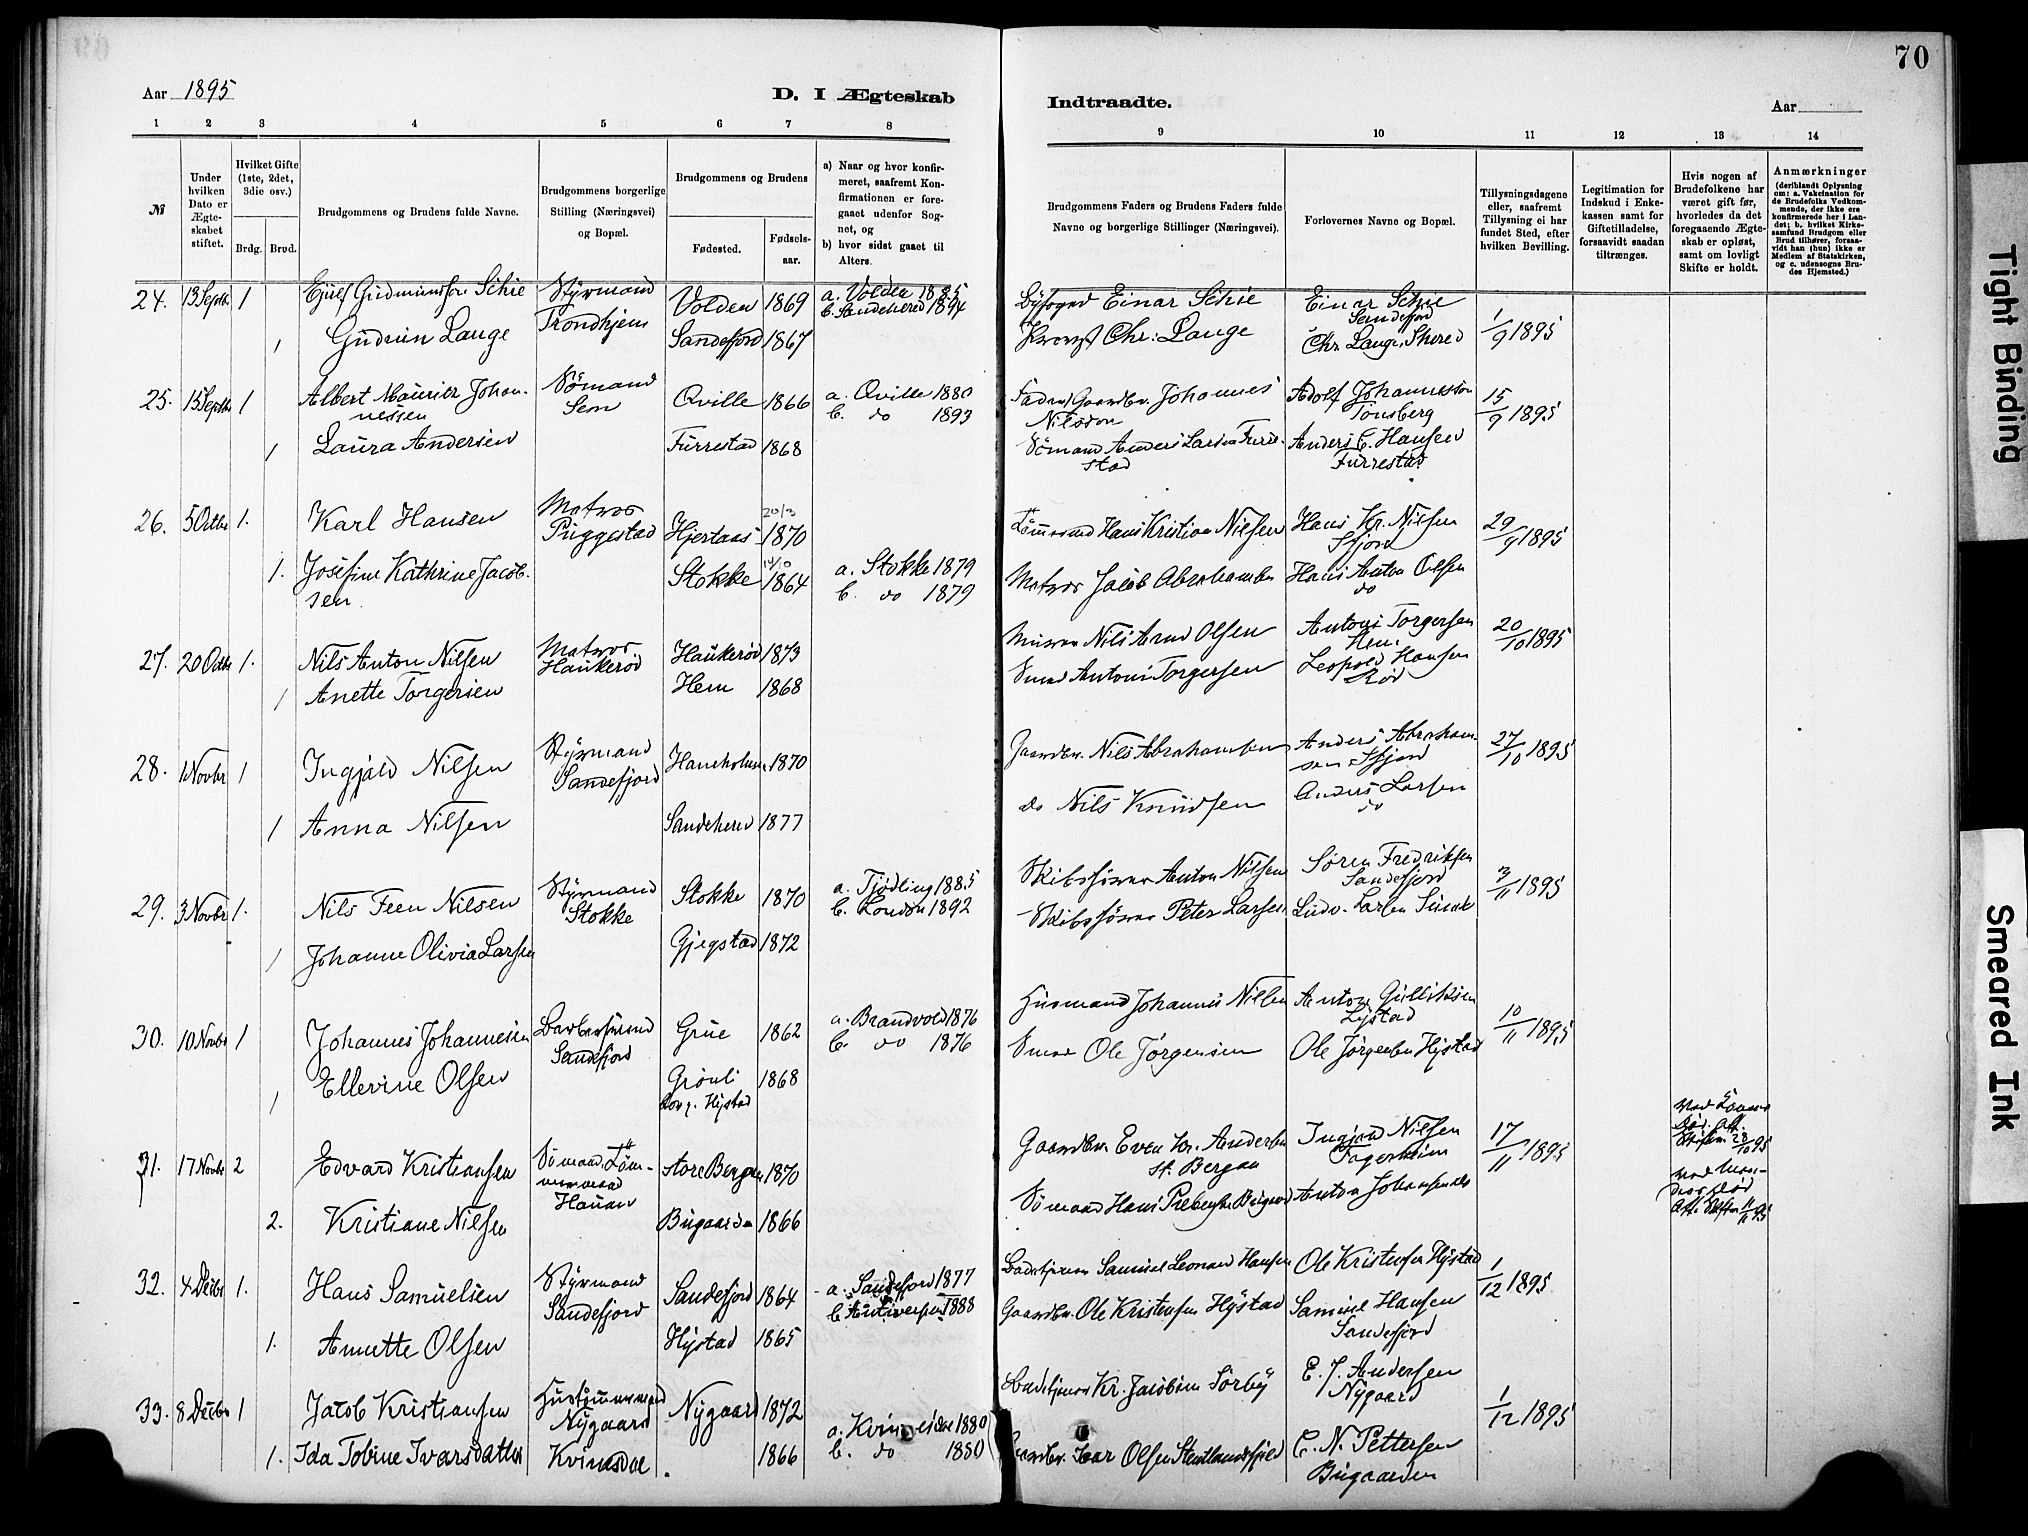 70
Aar 1895
D. I Ægteskab
Indtraadte.
Aar
1 2 3 4 5 6 7 8 9 10 11 12 13 14
№
Under hvilken Dato er Ægteskabet stiftet.
Hvilket Gifte (1ste, 2det, 3die osv.)
Brdg. Brud.
Brudgommens og Brudens fulde Navne.
Brudgommens borgerlige Stilling (Næringsvei) og Bopæl.
Brudgommens og Brudens
Fødested. Fødselsaar.
a) Naar og hvor konfirmeret, saafremt Konfirmationen er foregaaet udenfor Sognet, og
b) hvor sidst gaaet til Alters.
Brudgommens Faders og Brudens Faders fulde Navne og borgerlige Stillinger (Næringsvei).
Forlovernes Navne og Bopæl.
Tillysningsdagene eller, saafremt Tillysning ei har fundet Sted, efter hvilken Bevilling.
Legitimation for Indskud i Enkekassen samt for Giftetilladelse, forsaavidt saadan tiltrænges.
Hvis nogen af Brudefolkene har været gift før, hvorledes da det foregaaende Ægteskab er opløst, samt om lovligt Skifte er holdt.
Anmærkninger
(deriblandt Oplysning om: a. Vakcination for de Brudefolks Vedkommende, der ikke ere konfirmerede her i Landet; b. hvilket Kirkesamfund Brudgom eller Brud tilhører, forsaavidt han (hun) ikke er Medlem af Statskirken, og c. udensogns Brudes Hjemsted.)
24. 13 Septb. 1 Schie Styrmand Volden 1869 a. Volden 1885 Einar Schie Einar Schie 1/9 1895
Trondhjem b. Sandeherred 1894 Sandefjord
1 Gudrun Lange Sandefjord 1867 Chr: Lange Chr Lange,
25. 15 Septb 1 Albert Maurits Johannessen Sømand Sem Qville 1866 a. Qville 1880 Johannes Nilsson Adolf Johannesson Tønsberg 15/9 1895
b. do 1893
1 Laura Andersen Furrestad 1868 Sømand Anders Larsen Furrestad Anders C. Hansen Furrestad
26. 5 Octbr 1. Karl Hansen Matros Puggestad Hjertaas 20/3 1870 Hans Kristian Nilsen Hans Kr. Nilsen Sfjord 29/9 1895
1. Josefine Kathrine Jacobsen Stokke 1864 a. Stokke 1879 Matros Jacob Abrahamsen Hans Anton Olsen do
b. do 1879
27. 20 Octb 1. Nils Anton Nilsen Matros Haukerød Haukerød 1873 Olsen Antoni Torgersen Hem 20/10 1895
1 Anette Torgersen Hem 1868 Smed Antoni Torgersen Leopold Hansen Rød
28. 1 Novbr 1 Ingjald Nilsen Styrmand Sandefjord Haneholmen 1870 Gaardbr. Nils Abrahamsen Anders Abrahamsen Sfjord 27/10 1895
1 Anna Nilsen Sandeherred 1877 do Nils Knudsen Anders Larsen do
29. 3 Novbr 1. Nils Feen Nilsen Styrmand Stokke Stokke 1870 a. Tjødling 1885 Skibsfører Anton Nilsen Søren Fredriksen Sandefjord 3/11 1895
b. London 1892
1 Johanne Olivia Larsen Gjegstad 1872 Skibsfører Peter Larsen Ludv. Larsen
30. 10 Novbr 1 Johannes Johannesen Sandefjord Grue 1862 a. Brandvold 1876 Husmand Johannes Nilsen Anton Gulliksen 10/11 1895
b. do 1876
1 Ellevine Olsen Grønli Hystad 1868 Smed Ole Jørgensen Ole Jørgensen Hystad
31. 17 Novbr 2 Edvard Kristiansen Sømand Tømmermand store Bergan 1870 Gaardbr. Even Kr. Andersen st. Bergan Ingjald Nilsen 17/11 1895
2. Kristiane Nilsen Bugaarden 1866 Sømand Hans Anton Johansen do
32. 4 Decbr 1. Hans Samuelsen Styrmand Sandefjord Sandefjord 1864 a. Sandefjord 1877 Samuel Leonard Hansen Ole Kristensen Hystad 1/12 1895
b. Antwerpen 1888
1. Annette Olsen Hystad 1865 Gaardbr. Ole Kristensen Hystad Samuel Hansen Sandefjord
33. 8 Decbr 1 Jacob Kristiansen Hustømmermand Nygaard Nygaard 1872 Kr. Jacobsen Sørby E. J. Andersen Nygaard 1/12 1895
1. Ida Tobine Ivarsdatter Kvinesdal 1866 1880 Gaardbr. Ivar Olsen C. N. Pettersen Bugaarden
b. do 1880
Tight Binding
Smeared Ink